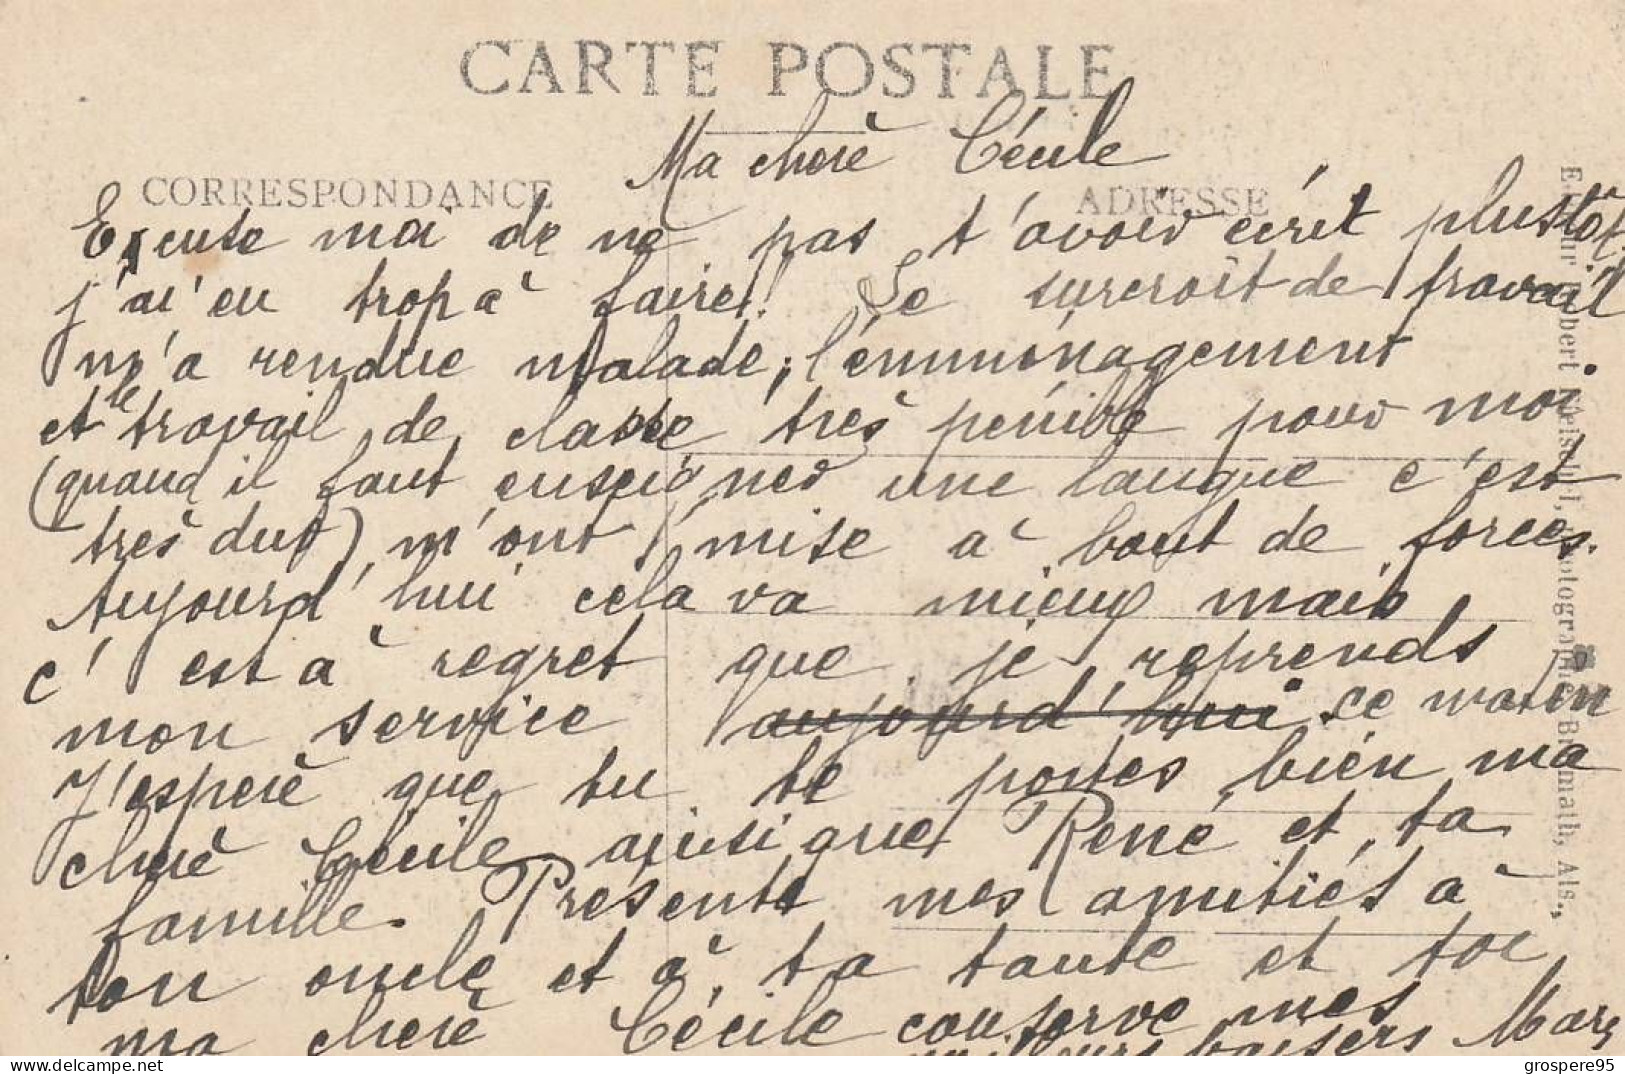 CARTE POSTALE
Ma chere Cécile
CORRESPONDANCE
ADRESSE
Excuse moi de ne pas t'avoir écrit plustôt
j'ai eu trop à faire! Le surcroit de travail
m'a rendue malade; l'emménagement
et le travail de classe très pénible pour moi
(quand il faut enseigner une langue c'est
très dur), m'ont mise à bout de forces.
Aujourd'hui cela va mieux mais
c'est à regret que je reprends
mon service aujourd'hui ce matin
J'espere que tu te portes bien ma
chere Cécile ainsi que René et ta
famille. Présente mes amitiés à
ton oncle et à ta tante et toi
ma chere Cécile conserve mes
meilleurs baisers
Photographe, Brumath, Als.,
grospere95